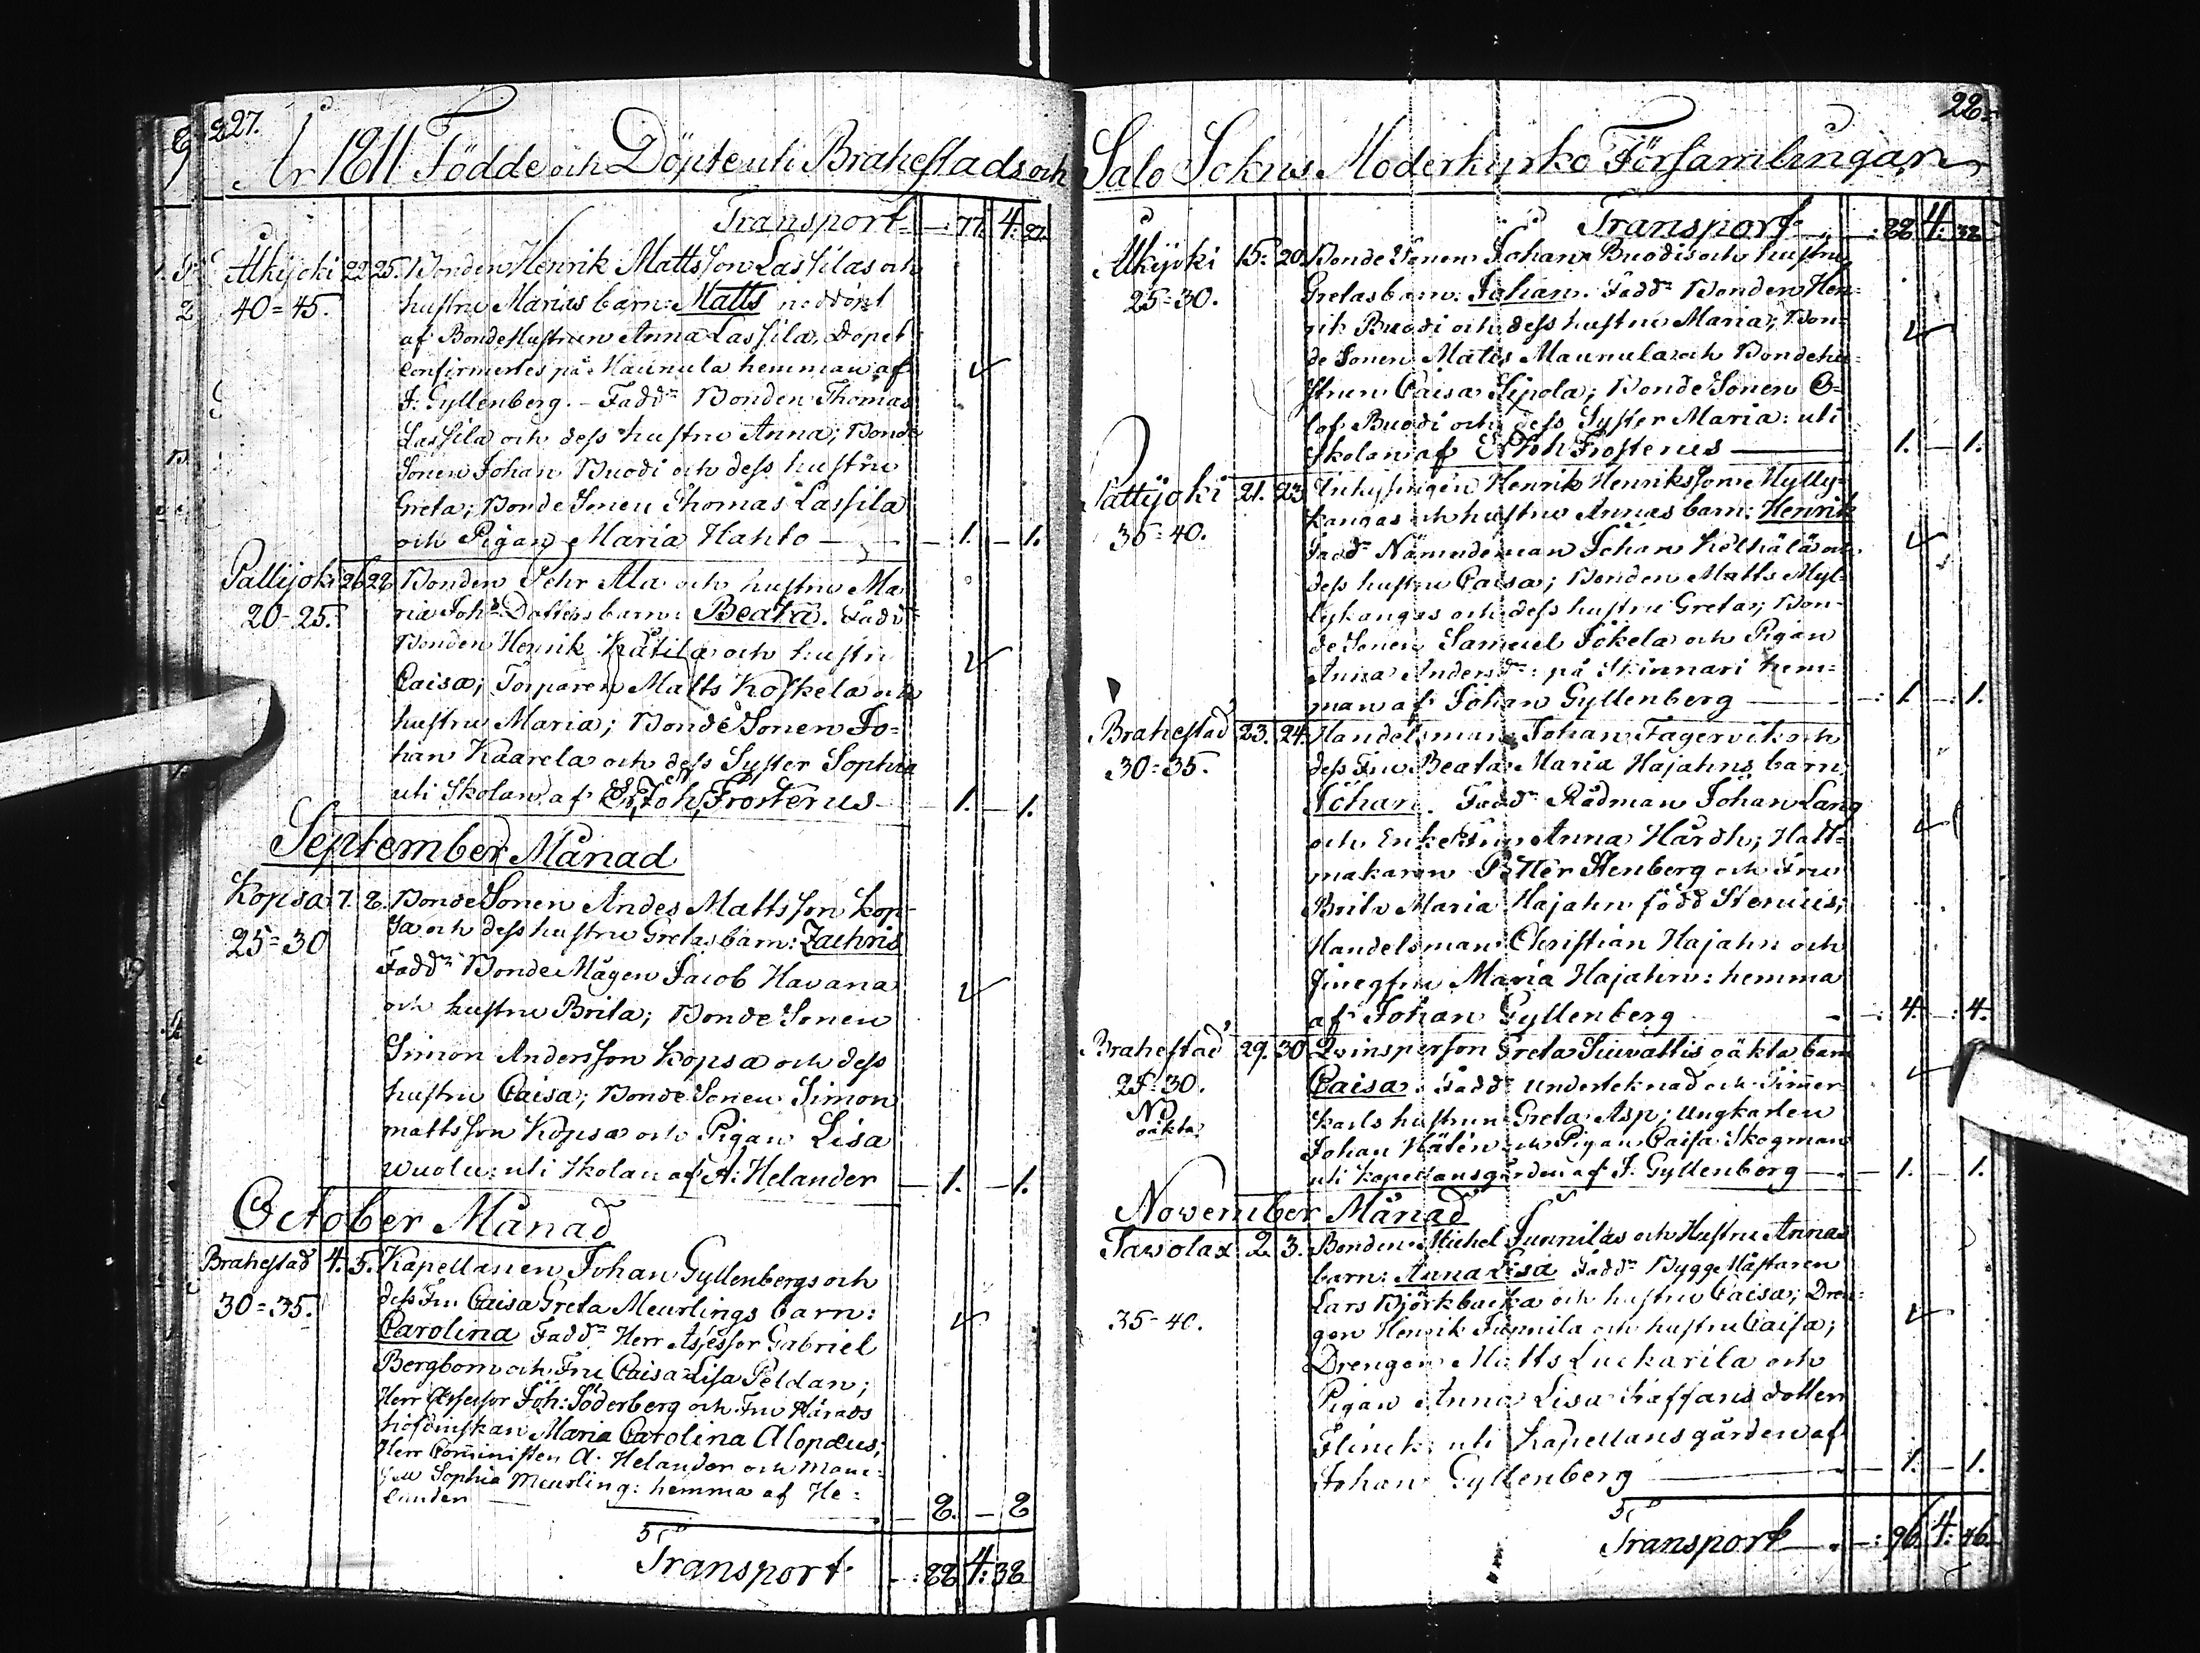 227.
År 1811 Födde och Döpte uti Brahestads och
Transport — 77. 4. 27.
Alkijoki 22 25. Bonden Henrik Mattsson Lassilas och
40=45. hustru Marias barn: Matts nöddöpt
af Bonde Hustrun Anna Lassila, Dopet
Confirmertes på Maunula hemman af
J: Gyllenberg. – Fadd: Bonden Thomas
Lassila och dess hustru Anna; Bonde
Sonen Johan Buodi och dess hustru
Greta; Bonde Sonen Thomas Lassila
och Pigan Maria Hahto — 1. — 1.
Pattijoki 26 28 Bonden Pehr Ala och hustru Ma-
20-25. ria Joh: Dotters barn: Beata. Fadd:
Bonden Henrik Kåtila och hustru
Caisa; Torparen Matts Koskela och
hustru Maria; Bonde Sonen Jo=
han Kaarela och dess Syster Sophia
uti Skolan af Er. Joh. Frosterus — 1. — 1.
September Månad
Kopsa 7. 8. Bonde Sonen Andes Mattsson Kop-
25=30 sa och dess hustru Gretas barn: Zachris
Fadd: Bonde Mågen Jacob Havana
och hustru Brita; Bonde Sonen
Simon Andersson Kopsa och dess
hustru Caisa; Bonde Sonen Simon
mattsson Kopsa och Pigan Lisa
Wuolu: uti Skolan af A: Helander — 1. — 1.
October Månad
Brahestad 4. 5. Kapellanen Johan Gyllenbergs och
30=35. dess Fru Caisa Greta Meurlings barn:
Carolina Fadd: Herr Assessor Gabriel
Bergbom och Fru Caisa Lisa Peldan;
Herr Assessor Joh: Söderberg och Fru Härads
höfdinskan Maria Carolina Alopæus;
Herr Comministen A. Helander och Mam-
sell Sophia Meurling: hemma af He=
lander — 8. — 8
Transport — : 88 4: 38
228
Salo Sokns Moderkyrko Församlingar
Transport — : 88 4: 38
Alkijoki 15. 20. Bonde Sonen Johan Buodis och hustru
25=30. Gretas barn: Johan. Fadd: Bonden Hen=
rik Buodi och dess hustru Maria; Bon=
de Sonen Matts Maunula och Bondehu=
strun Caisa Sipola; Bonde Sonen O=
lof Buodi och dess Syster Maria: uti
Skolan af Er Joh Frosterus — 1. — 1.
Pattijoki 21. 23 Inhysingen Henrik Henriksson Mylly=
35=40. kangas och hustru Annas barn: Henrik
Fadd: Nämndeman Johan Kelhälä och
dess hustru Caisa; Bonden Matts Myl=
lykangas och dess hustru Greta; Bon=
de Sonen Samuel Jokela och Pigan
Anna Andersd:r: på Skinnari hem=
man af Johan Gyllenberg — : 1. — : 1.
Brahestad 23. 24. Handelsman Johan Fagervik och
30=35. dess Fru Beata Maria Hajahns barn
Johan. Fadd: Rådman Johan Lang
och Enke Fru Anna Hårdh; Hatt=
makaren Petter Stenberg och Fru
Brita Maria Hajahn född Stenius;
Handelsman Christian Hajahn och
Jungfru Maria Hajahn: hemma
af Johan Gyllenberg — : 4. — : 4.
Brahestad 29. 30 Qvinsperson Greta Siuvattis oäkta barn
25=30. Caisa. Fadd: undertecknad och Timmer
No oäkta karls hustrun Greta Asp; Ungkarlen
Johan Kätén och Pigan Caisa Skogman
uti Kapellansgården af J. Gyllenberg — 1. — 1.
November Månad
Pawolax 2. 3. Bonden Michel Junnilas och Hustru Annas
barn: Anna Lisa Fadd: Bygge Mästaren
Lars Björkbacka och hustru Caisa; Dren=
35-40. gen Henrik Junnila och hustru Caisa;
Drengen Matts Luckarila och
Pigan Anna Lisa Staffans dotter
Flinck: uti Kapellansgården af
Johan Gyllenberg — 1. — 1.
Transport — : 96. 4: 46.